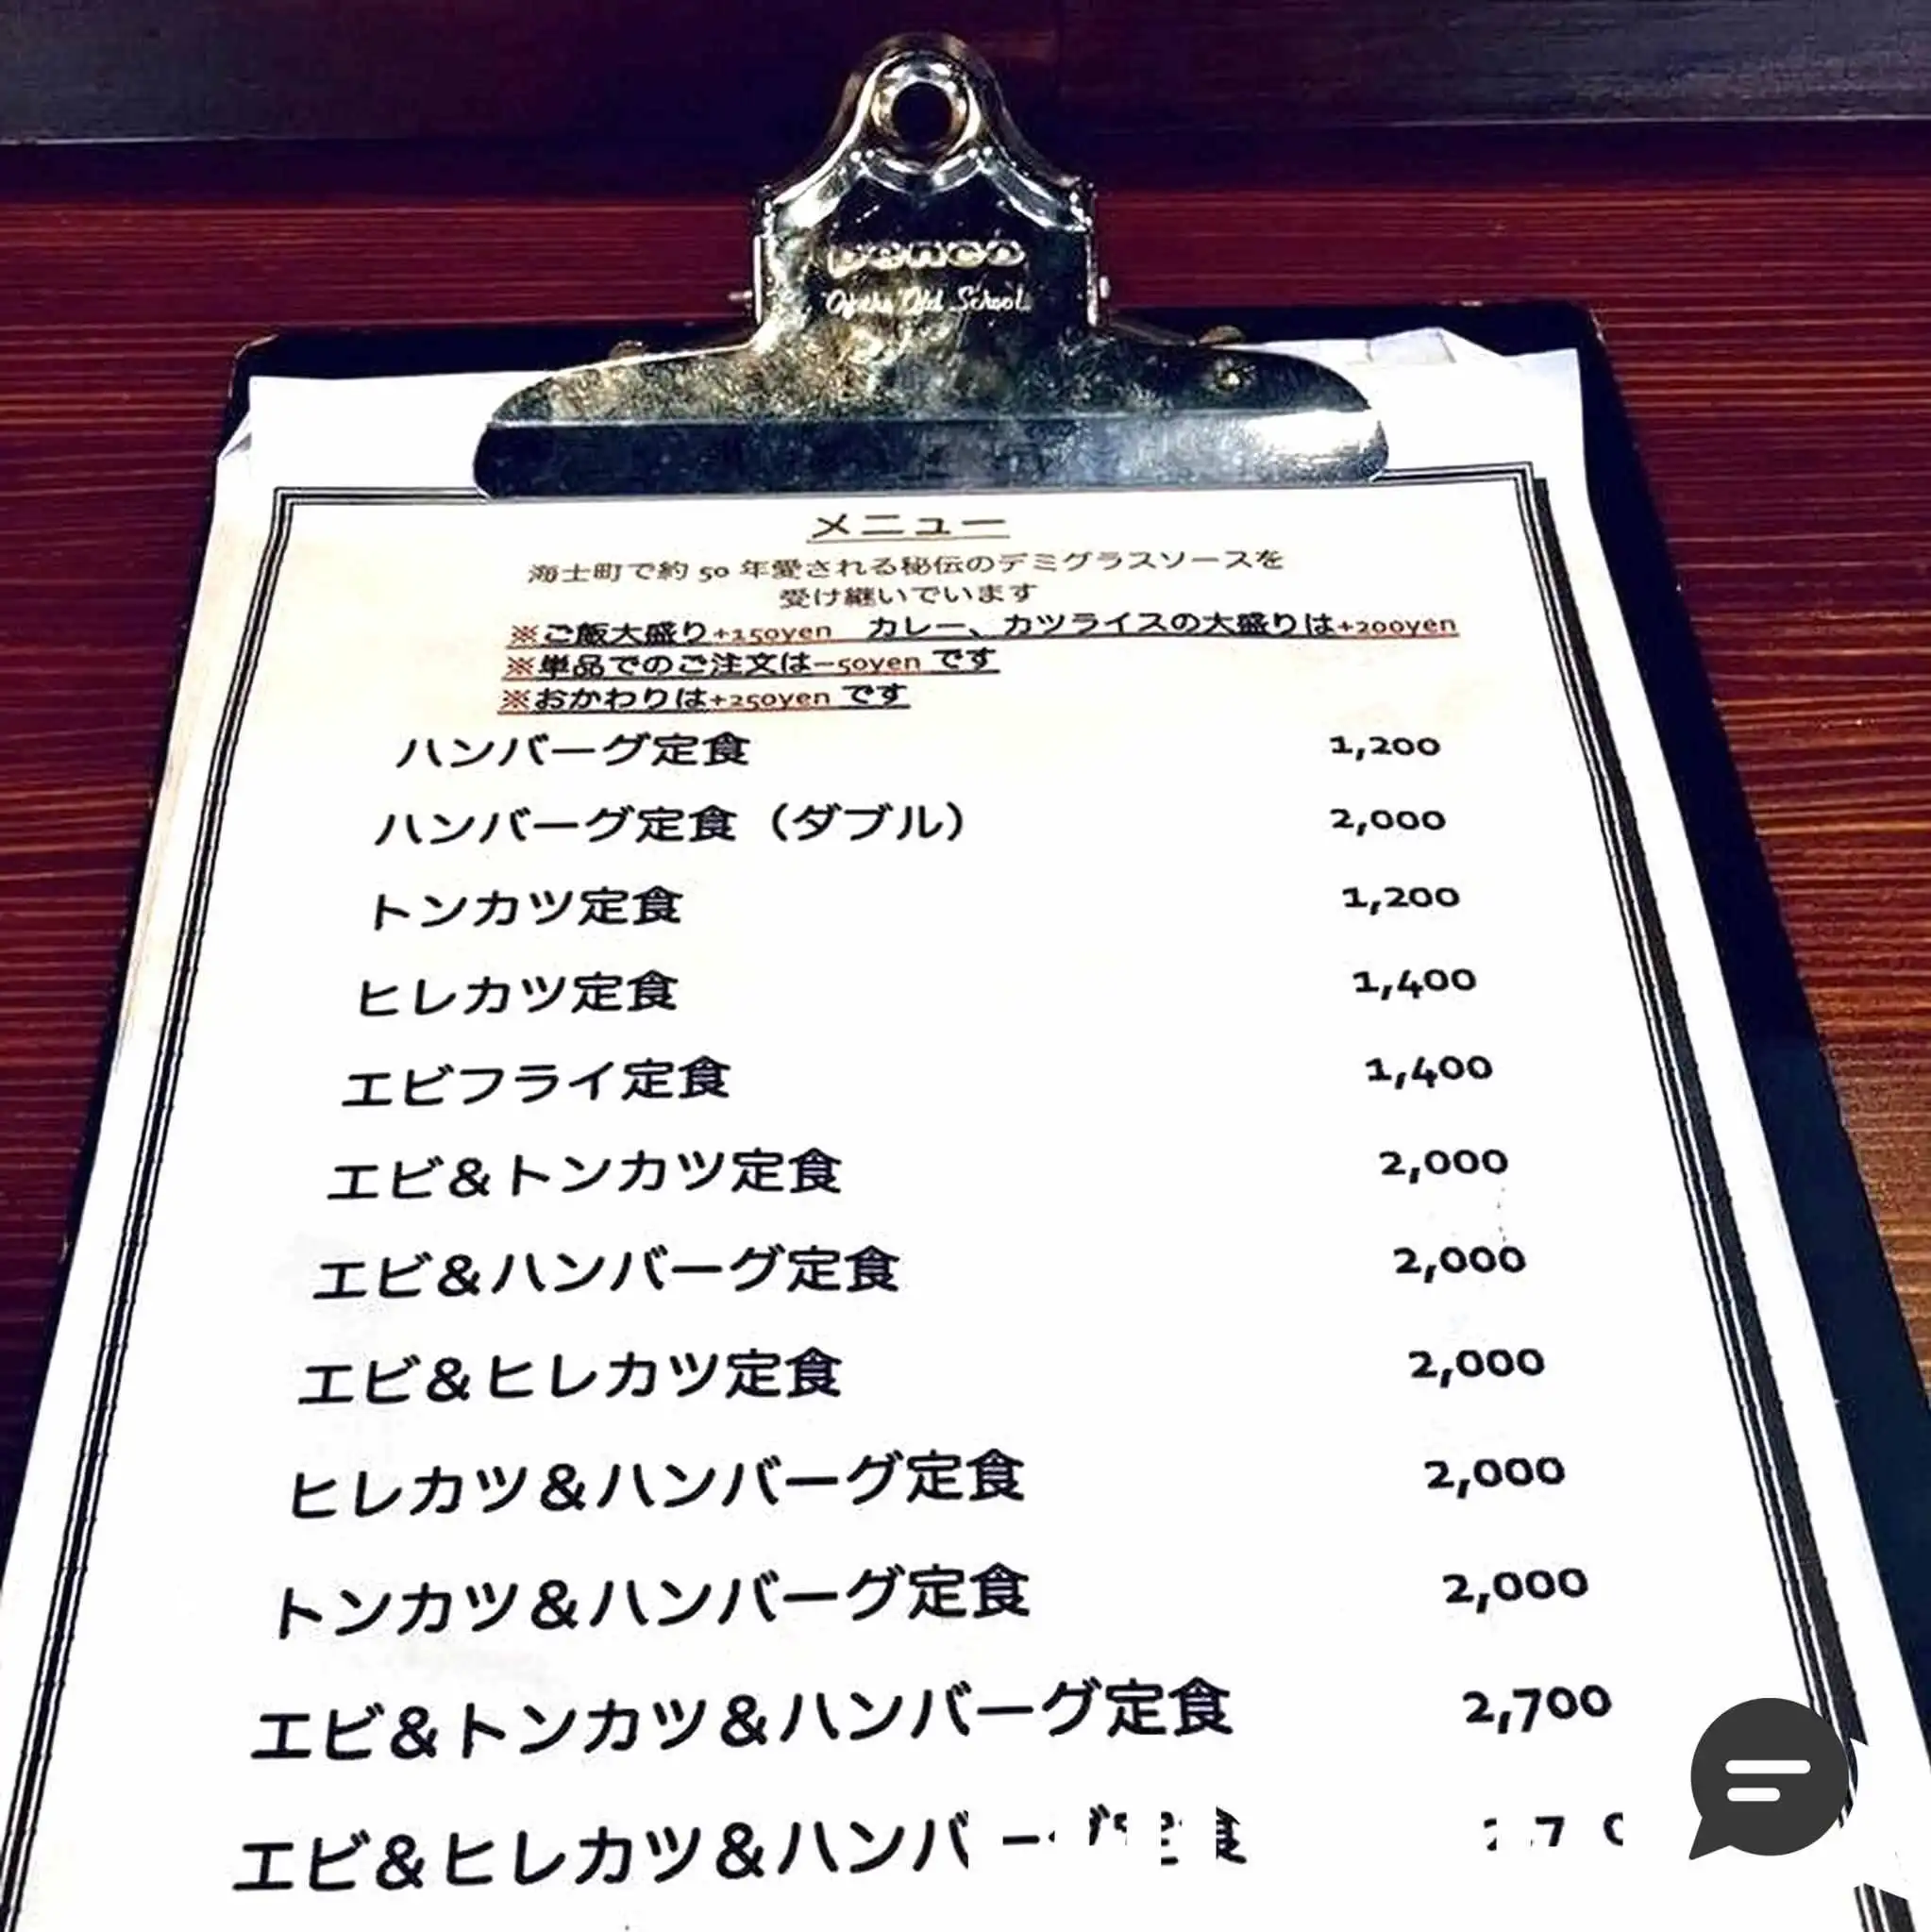 penco
Of the Old School
メニュー
海士町で約 50 年愛される秘伝のデミグラスソースを
受け継いでいます
※ご飯大盛り+150yen カレー、カツライスの大盛りは+200yen
※単品でのご注文は−50yen です
※おかわりは+250yen です
ハンバーグ定食 1,200
ハンバーグ定食（ダブル） 2,000
トンカツ定食 1,200
ヒレカツ定食 1,400
エビフライ定食 1,400
エビ&トンカツ定食 2,000
エビ&ハンバーグ定食 2,000
エビ&ヒレカツ定食 2,000
ヒレカツ&ハンバーグ定食 2,000
トンカツ&ハンバーグ定食 2,000
エビ&トンカツ&ハンバーグ定食 2,700
エビ&ヒレカツ&ハンバーグ定食